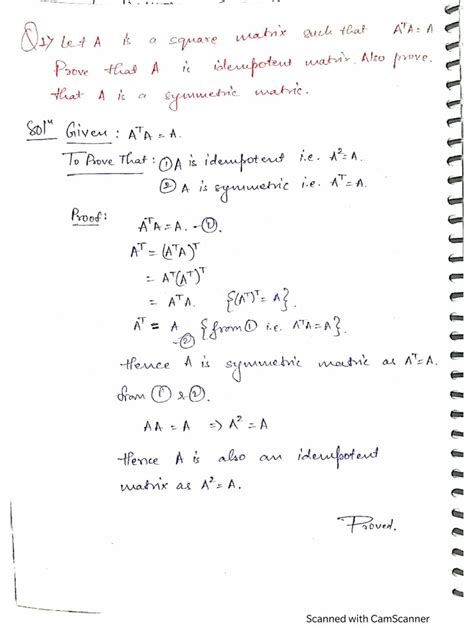 Q1> Let A is a square matrix such that AᵀA = A
Prove that A is idempotent matrix. Also prove.
that A is a symmetric matric.
Solⁿ Given : AᵀA = A.
To Prove That : ① A is idempotent i.e. A² = A.
② A is symmetric i.e. Aᵀ = A.
Proof :
AᵀA = A. - ①.
Aᵀ = (AᵀA)ᵀ
= Aᵀ(Aᵀ)ᵀ
= AᵀA. {(Aᵀ)ᵀ = A}.
Aᵀ = A {from ① i.e. AᵀA = A}.
- ②
Hence A is symmetric matric as Aᵀ = A.
from ① & ②.
AA = A => A² = A
Hence A is also an idempotent
matrix as A² = A.
Proved.
Scanned with CamScanner